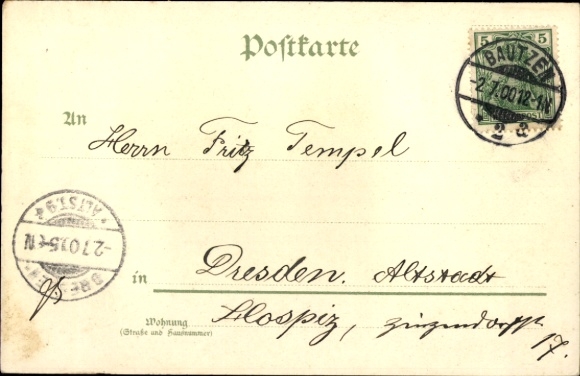 Postkarte
5 5
BAUTZEN
-2.7.00.12-1N.
2 a
An
Herrn Fritz Tempel
DRESDEN
-2.7.00.5-6N
* ALTST. 9 *
in
Dresden. Altstadt
Wohnung
(Straße und Hausnummer)
Hospiz, Zinzendorfstr.
17.